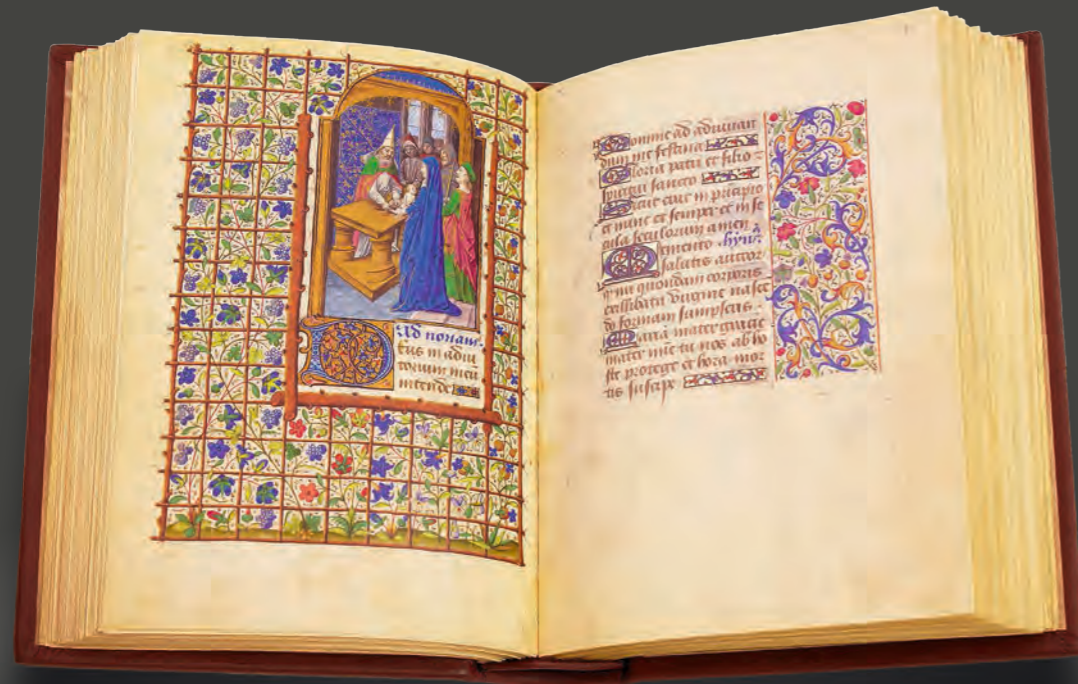 Ad nonam.
eus in adiu
torium meū
intende
Domine ad adiuuan
dum me festina
Gloria patri et filio
spiritui sancto
Sicut erat in principio
et nunc et semper et in se
cula seculorum amen
Memento hỹn9.
salutis auctor
q̄ nr̄i quondam corporis
ex illibata uirgine nascē
do formam sumpseris.
Maria mater gracie
mater mīe tu nos ab ho
ste protege et hora mor
tis suscipe